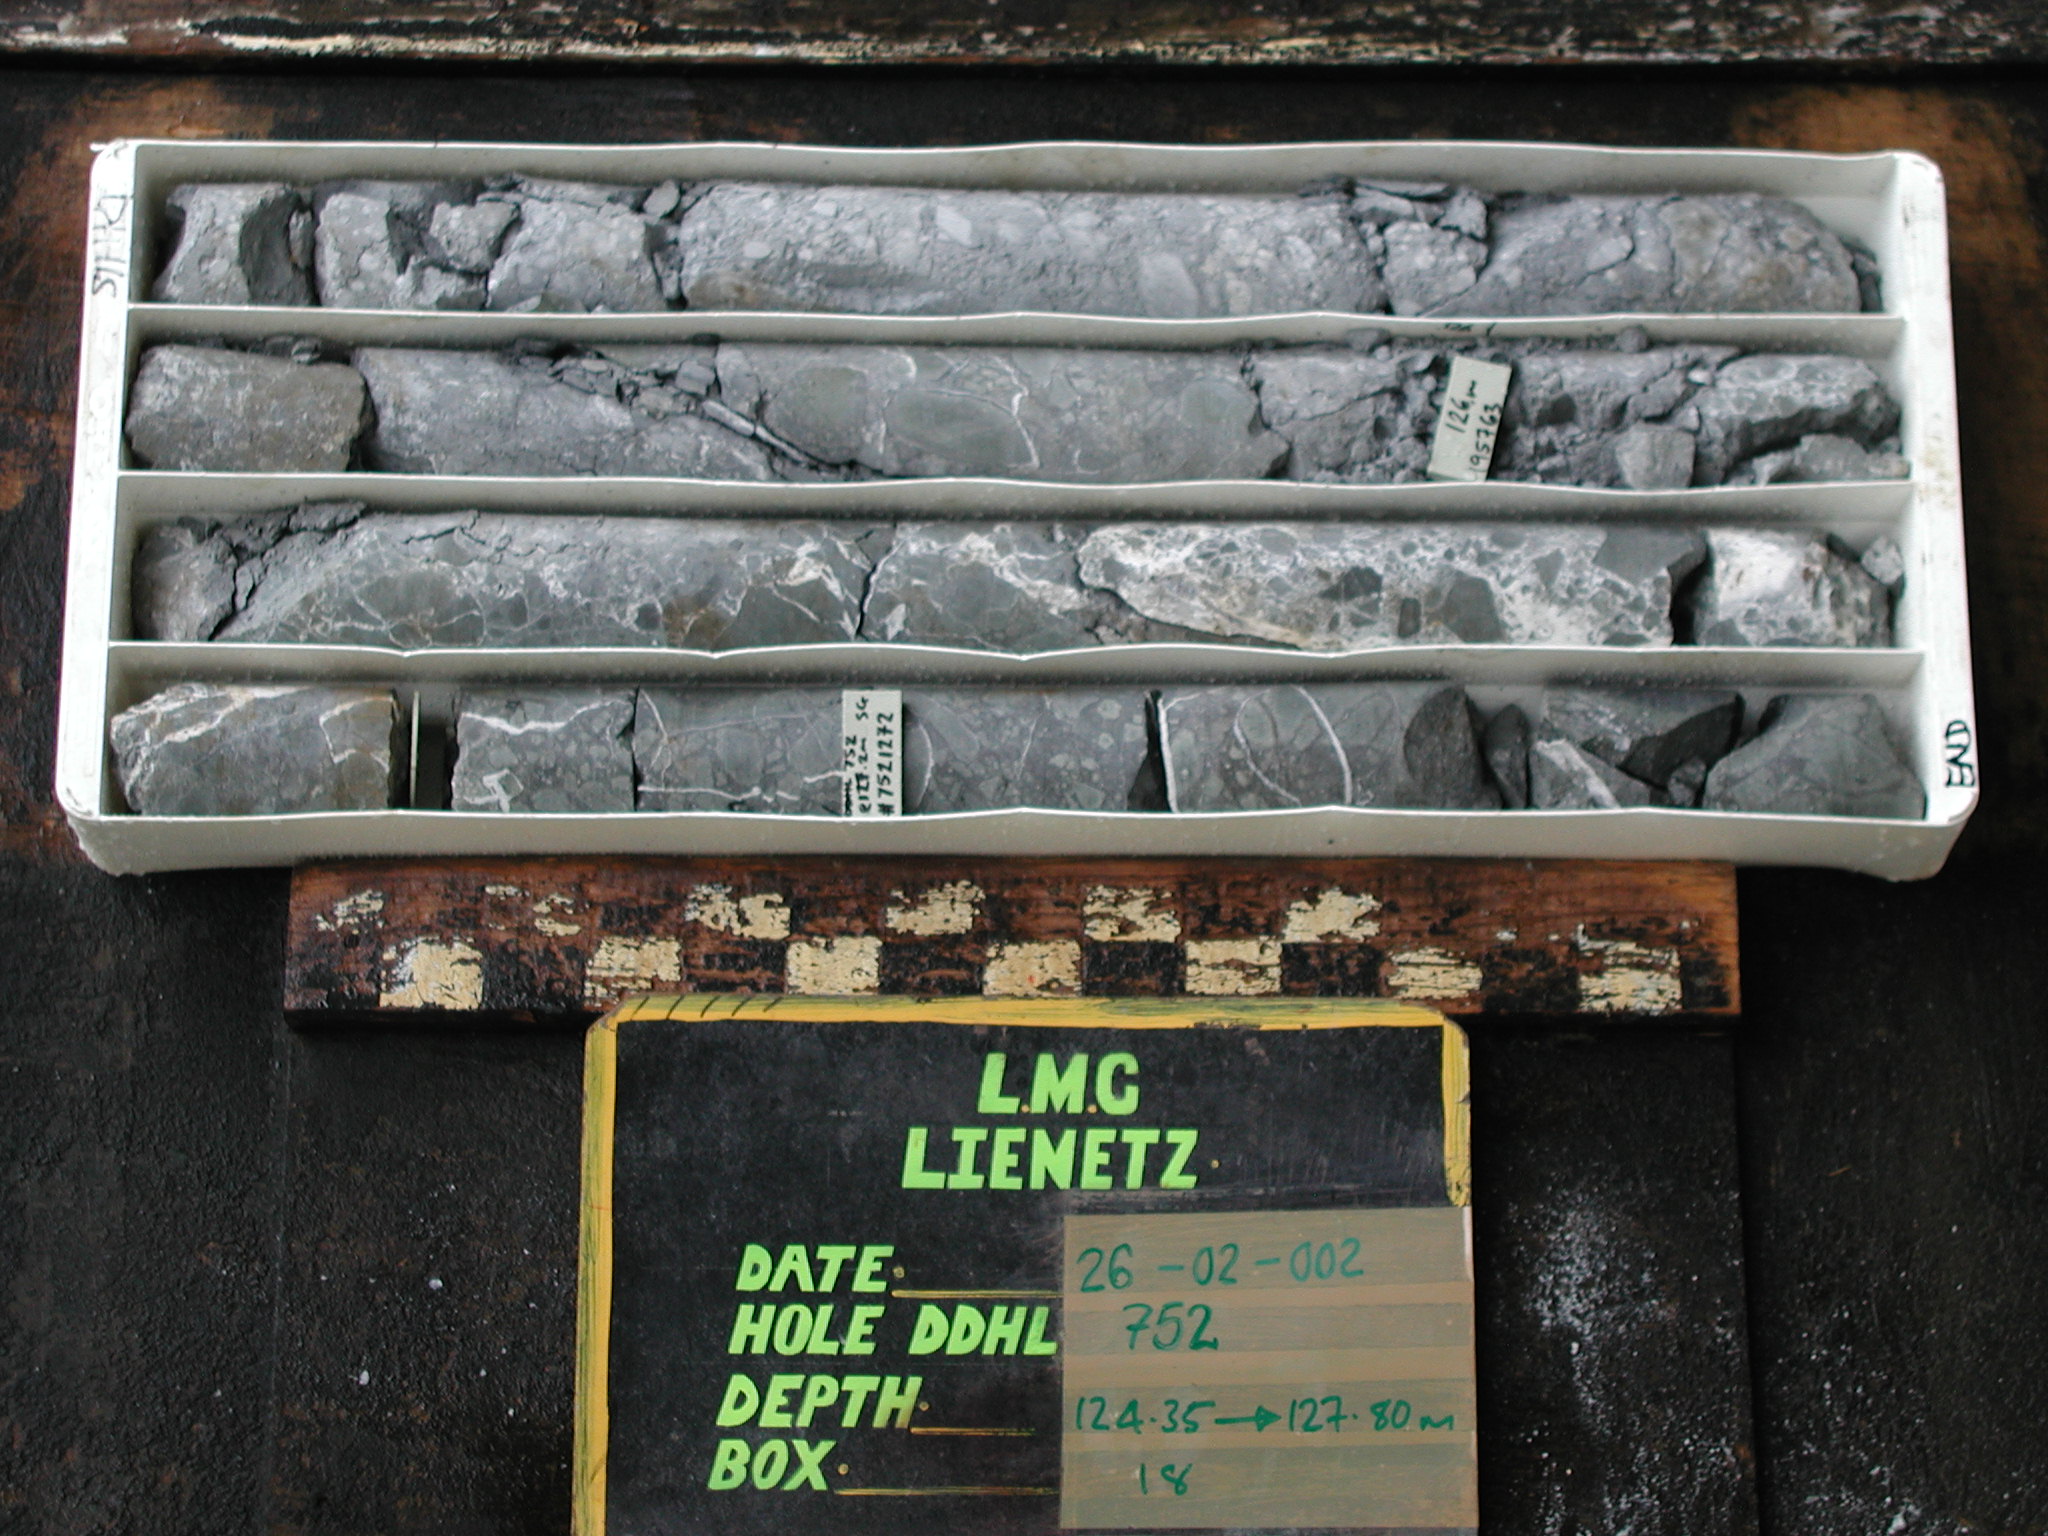 START
126m
195763
DDHL 752
@127.2m SG
#7521272
END
L.M.G
LIENETZ
DATE 26-02-002
HOLE DDHL 752
DEPTH 124.35→127.80m
BOX 18